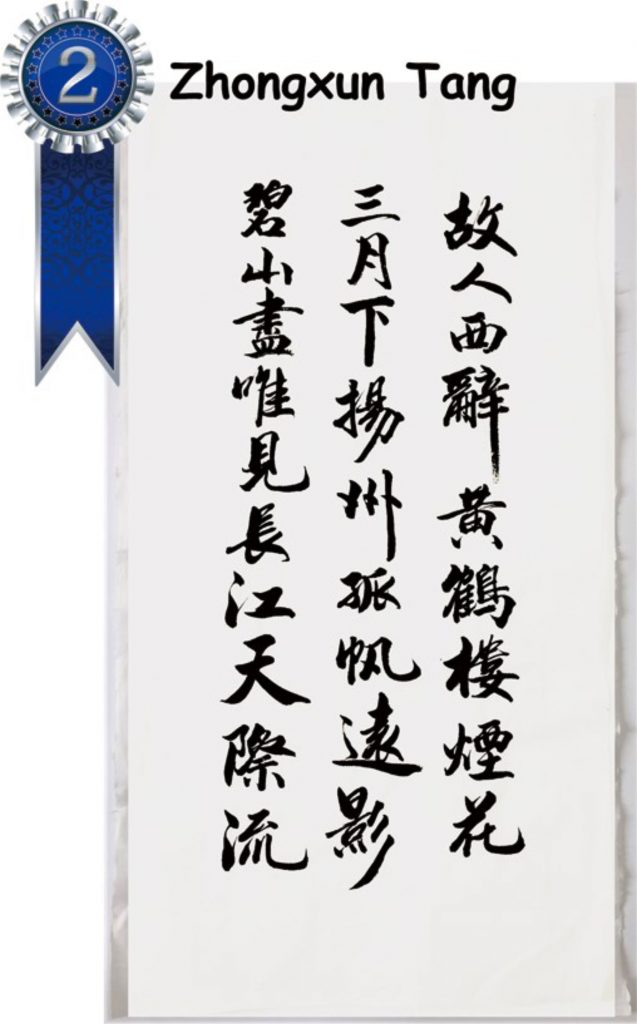 2
Zhongxun Tang
故人西辭黃鶴樓煙花
三月下揚州孤帆遠影
碧山盡唯見長江天際流